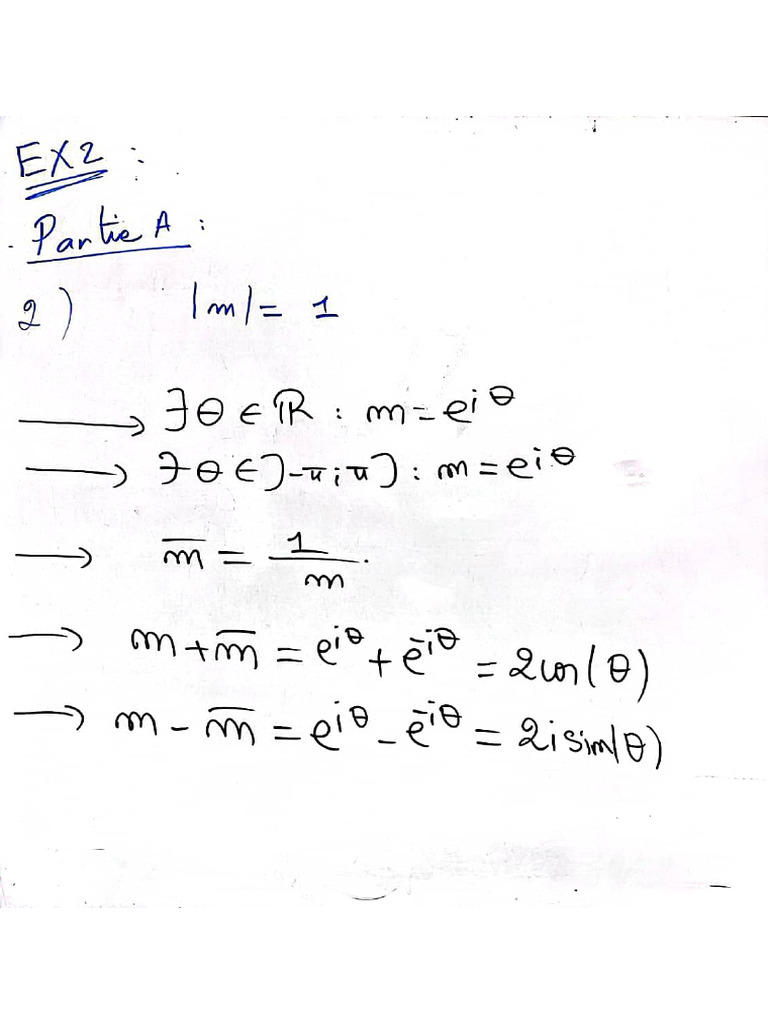 EX2 :
Partie A :
2) |m| = 1
→ ∃θ ∈ ℝ : m = e^{iθ}
→ ∃θ ∈ ]-π; π] : m = e^{iθ}
→ m̅ = 1/m.
→ m + m̅ = e^{iθ} + e^{-iθ} = 2cos(θ)
→ m - m̅ = e^{iθ} - e^{-iθ} = 2i sin(θ)